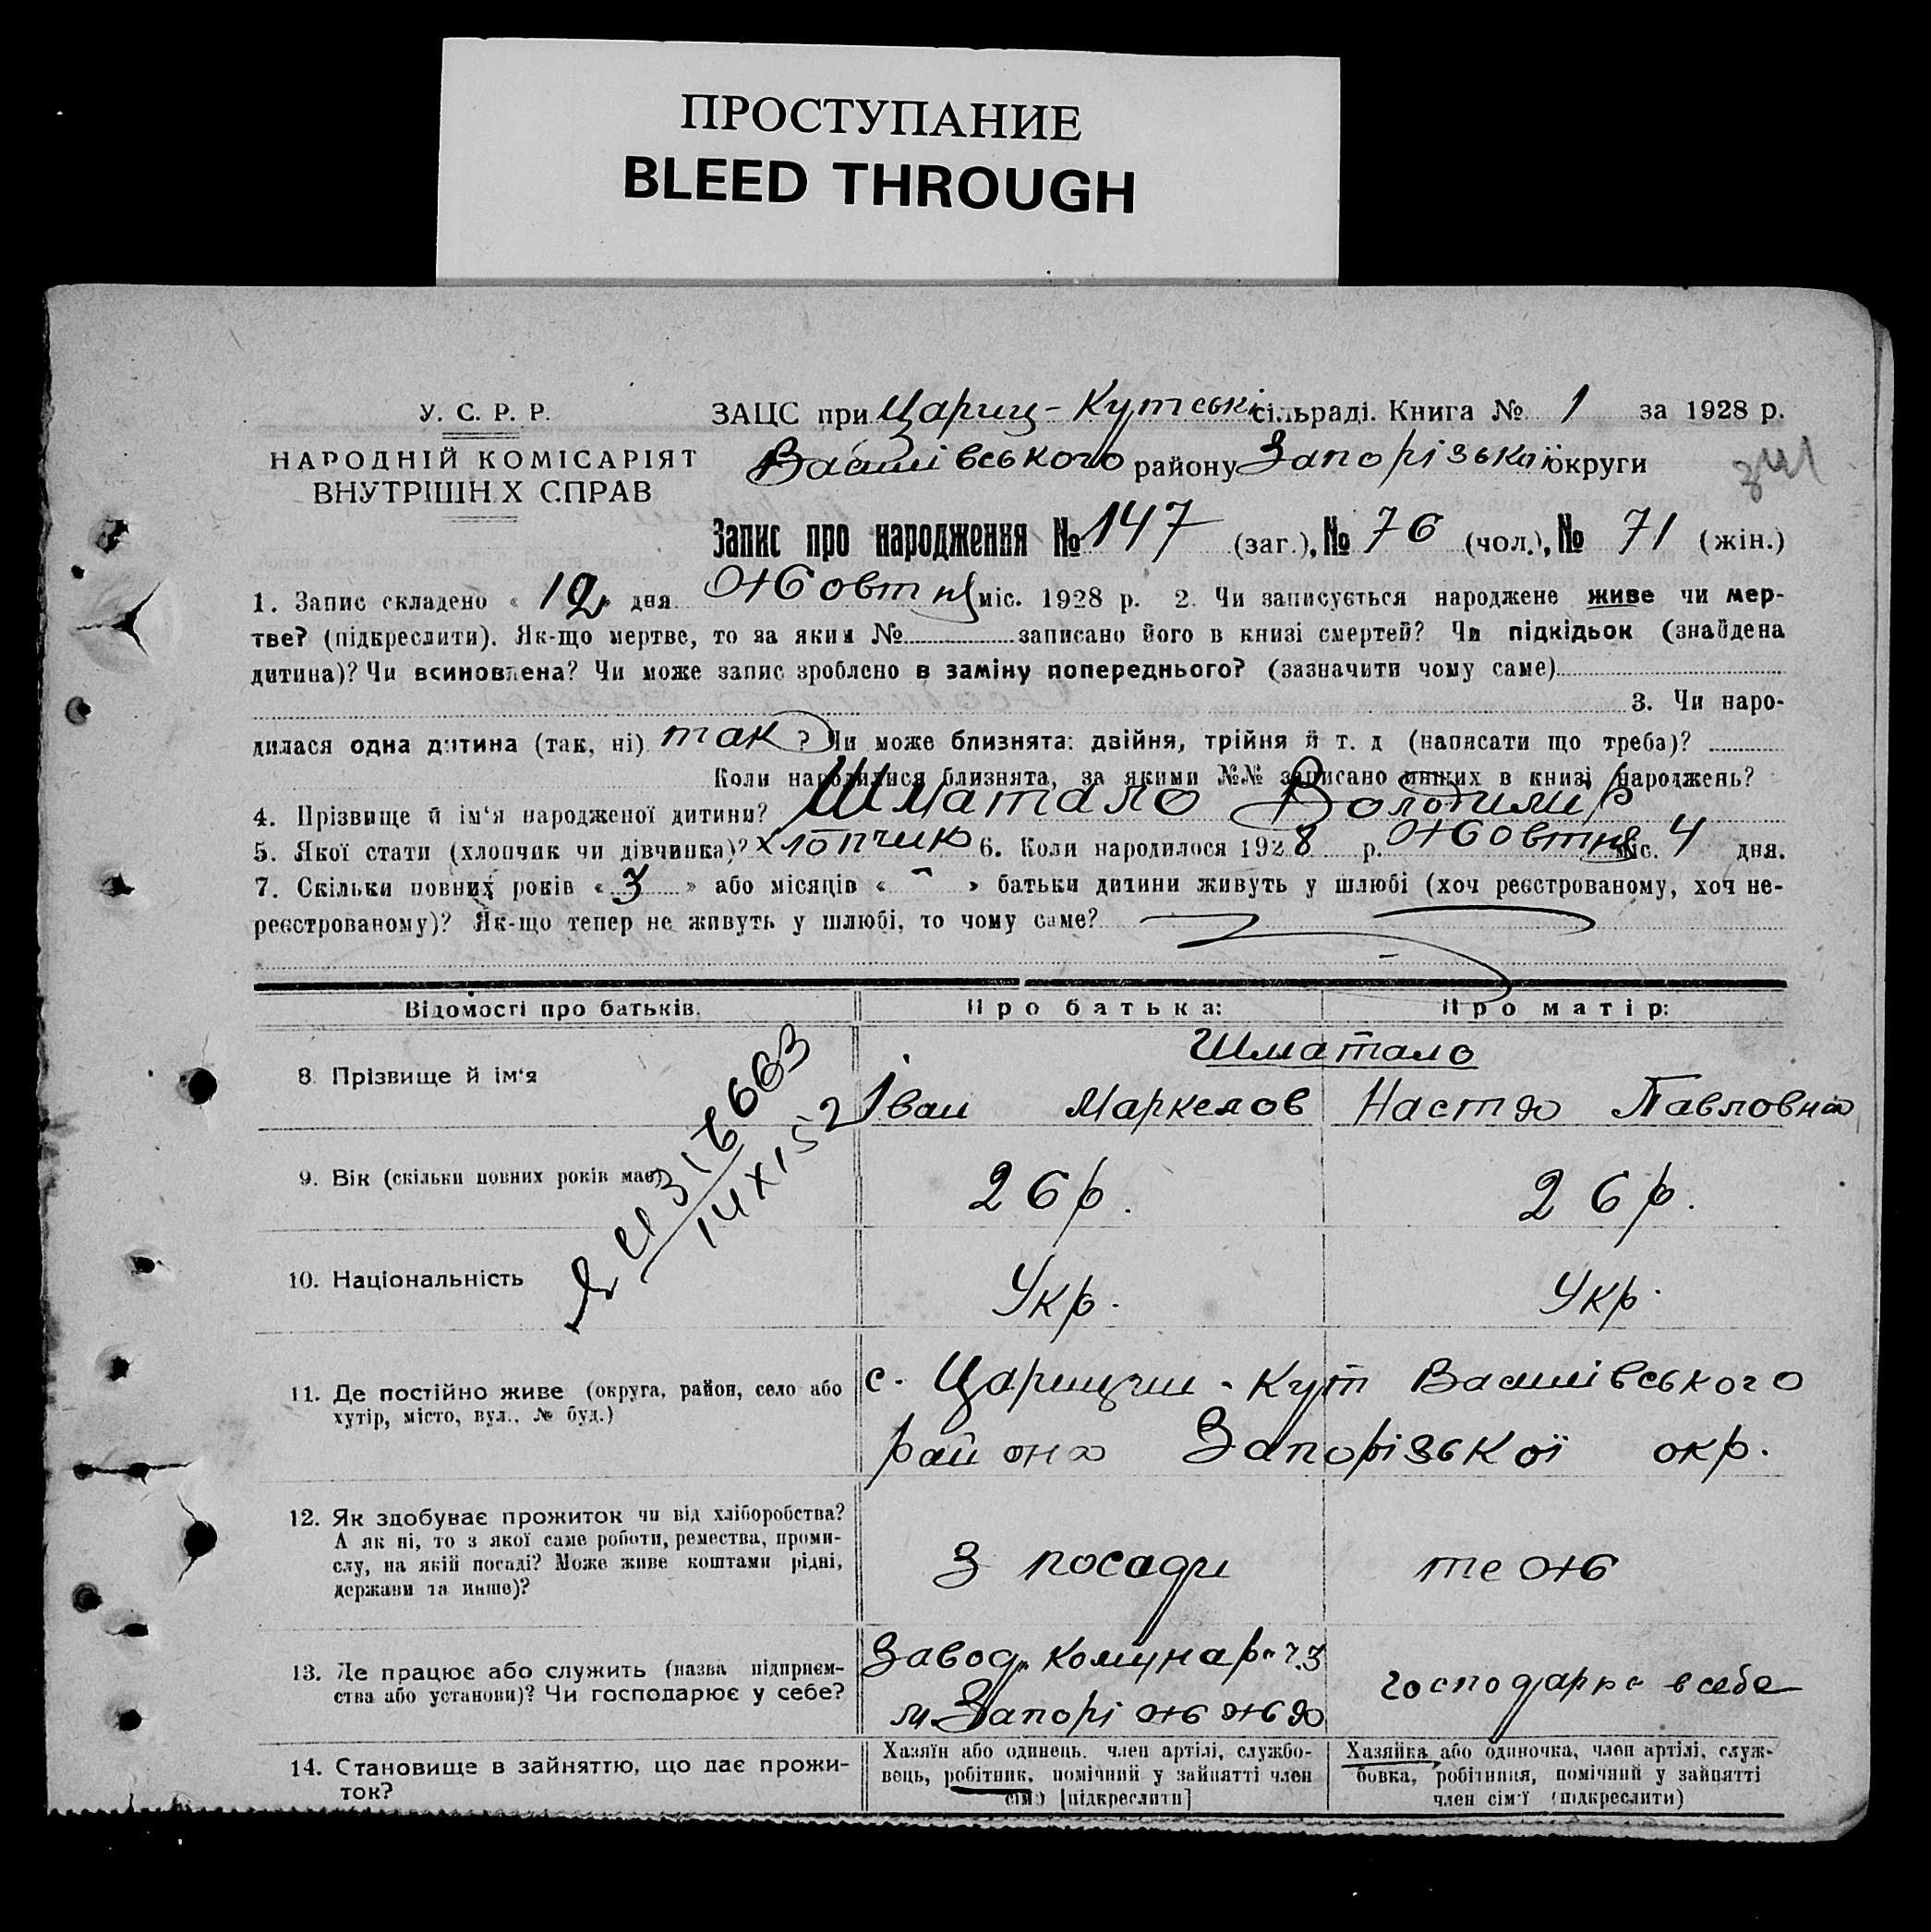 ПРОСТУПАНИЕ
BLEED THROUGH
У. С. Р. Р.
НАРОДНІЙ КОМІСАРІЯТ
ВНУТРІШН Х СПРАВ
ЗАЦС при Цариц-Кутській сільраді. Книга № 1 за 1928 р.
Василівського району Запорізької округи
Запис про народження № 147 (заг.), № 76 (чол.), № 71 (жін.)
1. Запис складено « 12 » дня жовтня міс. 1928 р. 2. Чи записується народжене живе чи мер-
тве? (підкреслити). Як-що мертве, то за яким № записано його в книзі смертей? Чи підкідьок (знайдена
дитина)? Чи всиновлена? Чи може запис зроблено в заміну попереднього? (зазначити чому саме)
3. Чи наро-
дилася одна дитина (так, ні) так ? Чи може близнята: двійня, трійня й т. д (написати що треба)?
Коли народилися близнята, за якими №№ записано инших в книзі народжень?
4. Прізвище й ім'я народженої дитини? Шматало Володимир
5. Якої стати (хлопчик чи дівчинка)? хлопчик 6. Коли народилося 1928 р. жовтня міс. 4 дня.
7. Скільки повних років « 3 » або місяців « - » батьки дитини живуть у шлюбі (хоч реєстрованому, хоч не-
реєстрованому)? Як-що тепер не живуть у шлюбі, то чому саме?
Відомості про батьків. Про батька: Про матір:
Шматало
8. Прізвище й ім'я Іван Маркелов Настя Павловна
9. Вік (скільки повних років має) 26 р. 26 р.
316663
14 X 152
10. Національність Укр. Укр.
11. Де постійно живе (округа, район, село або
хутір, місто, вул., № буд.)
с. Царицин-Кут Василівського
района Запорізької окр.
12. Як здобуває прожиток чи від хліборобства?
А як ні, то з якої саме роботи, ремества, проми-
слу, на якій посаді? Може живе коштами рідні,
держави та инше)?
З посади теж
13. Де працює або служить (назва підприєм-
ства або установи)? Чи господарює у себе?
Завод „Комунар"
м. Запоріжжя
господарка в себе
14. Становище в зайняттю, що дає прожи-
ток?
Хазяїн або одинець, член артілі, службо-
вець, робітник, помічний у зайнятті член
сім'ї [підкреслити]
Хазяйка або одиночка, член артілі, служ-
бовка, робітниця, помічний у зайнятті
член сім'ї (підкреслити)